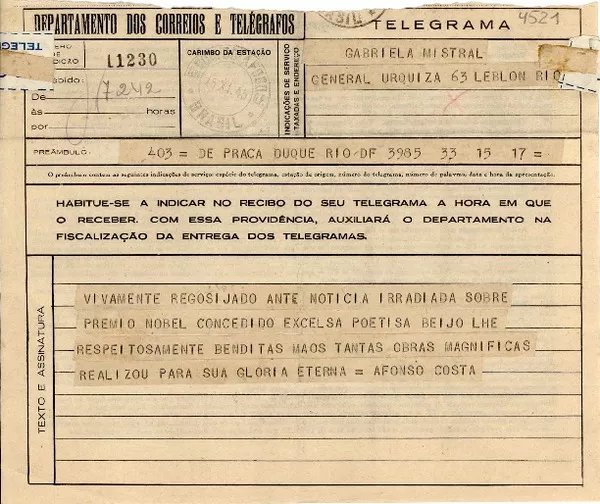 DEPARTAMENTO DOS CORREIOS E TELÉGRAFOS
TELEGRAMA
4521
11230
CARIMBO DA ESTAÇÃO
INDICAÇÕES DE SERVIÇO
TAXADAS E ENDEREÇO
GABRIELA MISTRAL
GENERAL URQUIZA 63 LEBLON RIO
De
às horas
por
7242
PREÂMBULO:
403 = DE PRACA DUQUE RIO/DF 3985 33 15 17 =
O preâmbulo contém as seguintes indicações de serviço: espécie do telegrama, estação de origem, número do telegrama, número de palavras, data e hora da apresentação.
HABITUE-SE A INDICAR NO RECIBO DO SEU TELEGRAMA A HORA EM QUE
O RECEBER. COM ESSA PROVIDÊNCIA, AUXILIARÁ O DEPARTAMENTO NA
FISCALIZAÇÃO DA ENTREGA DOS TELEGRAMAS.
TEXTO E ASSINATURA
VIVAMENTE REGOSIJADO ANTE NOTICIA IRRADIADA SOBRE
PREMIO NOBEL CONCEDIDO EXCELSA POETISA BEIJO LHE
RESPEITOSAMENTE BENDITAS MAOS TANTAS OBRAS MAGNIFICAS
REALIZOU PARA SUA GLORIA ETERNA = AFONSO COSTA